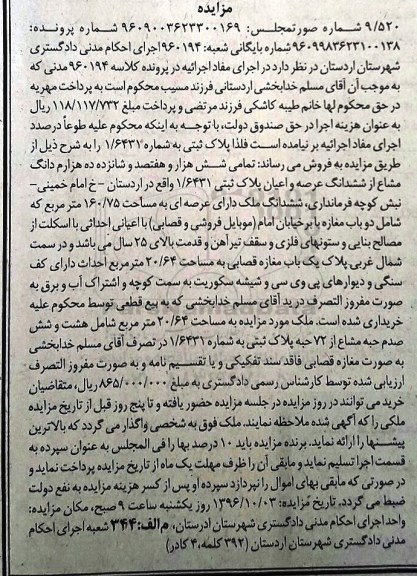 مزایده
۹/۵۲۰ شماره صورتمجلس: ۹۶۰۹۰۰۳۶۲۳۳۰۰۱۶۹ شماره پرونده:
۹۶۰۹۹۸۳۶۲۳۱۰۰۱۳۸ شماره بایگانی شعبه: ۹۶۰۱۹۴ اجرای احکام مدنی دادگستری
شهرستان اردستان در نظر دارد در اجرای مفاد اجرائیه در پرونده کلاسه ۹۶۰۱۹۴ مدنی که
به موجب آن آقای مسلم خدابخشی اردستانی فرزند مسیب محکوم است به پرداخت مهریه
در حق محکوم لها خانم طیبه کاشکی فرزند مرتضی و پرداخت مبلغ ۱۱۸/۱۱۷/۷۳۲ ریال
به عنوان هزینه اجرا در حق صندوق دولت، با توجه به اینکه محکوم علیه طوعاً درصدد
اجرای مفاد اجرائیه بر نیامده است فلذا پلاک ثبتی به شماره ۱/۶۴۳۱ را به شرح ذیل از
طریق مزایده به فروش می رساند: تمامی شش هزار و هفتصد و شانزده ده هزارم دانگ
مشاع از ششدانگ عرصه و اعیان پلاک ثبتی ۱/۶۴۳۱ واقع در اردستان - خ امام خمینی-
نبش کوچه فرمانداری، ششدانگ ملک دارای عرصه ای به مساحت ۱۶۰/۷۵ متر مربع که
شامل دو باب مغازه بر خیابان امام (موبایل فروشی و قصابی) با اعیانی احداثی با اسکلت از
مصالح بنایی و ستونهای فلزی و سقف تیرآهن و قدمت بالای ۲۵ سال می باشد و در سمت
شمال غربی پلاک یک باب مغازه قصابی به مساحت ۲۰/۶۴ متر مربع احداث دارای کف
سنگی و دیوارهای پی وی سی و شیشه سکوریت به سمت کوچه و اشتراک آب و برق به
صورت مفروز التصرف در ید آقای مسلم خدابخشی که به بیع قطعی توسط محکوم علیه
خریداری شده است. ملک مورد مزایده به مساحت ۲۰/۶۴ متر مربع شامل هشت و شش
صدم حبه مشاع از ۷۲ حبه پلاک ثبتی به شماره ۱/۶۴۳۱ در تصرف آقای مسلم خدابخشی
به صورت مغازه قصابی فاقد سند تفکیکی و یا تقسیم نامه و به صورت مفروز التصرف
ارزیابی شده توسط کارشناس رسمی دادگستری به مبلغ ۸۶۵/۰۰۰/۰۰۰ ریال، متقاضیان
خرید می توانند در روز مزایده در جلسه مزایده حضور یافته و تا پنج روز قبل از تاریخ مزایده
ملکی را که آگهی شده ملاحظه نمایند. ملک فوق به شخصی واگذار می گردد که بالاترین
پیشنها را ارائه نماید. برنده مزایده باید ۱۰ درصد بها را فی المجلس به عنوان سپرده به
قسمت اجرا تسلیم نماید و مابقی آن را ظرف مهلت یک ماه از تاریخ مزایده پرداخت نماید و
در صورتی که مابقی بهای اموال را نپردازد سپرده او پس از کسر هزینه مزایده به نفع دولت
ضبط می گردد. تاریخ مزایده: ۱۳۹۶/۱۰/۰۳ روز یکشنبه ساعت ۹ صبح، مکان مزایده:
واحد اجرای احکام مدنی دادگستری شهرستان آدرستان. م الف: ۳۴۴ شعبه اجرای احکام
مدنی دادگستری شهرستان اردستان (۳۹۲ کلمه، ۴ کادر)